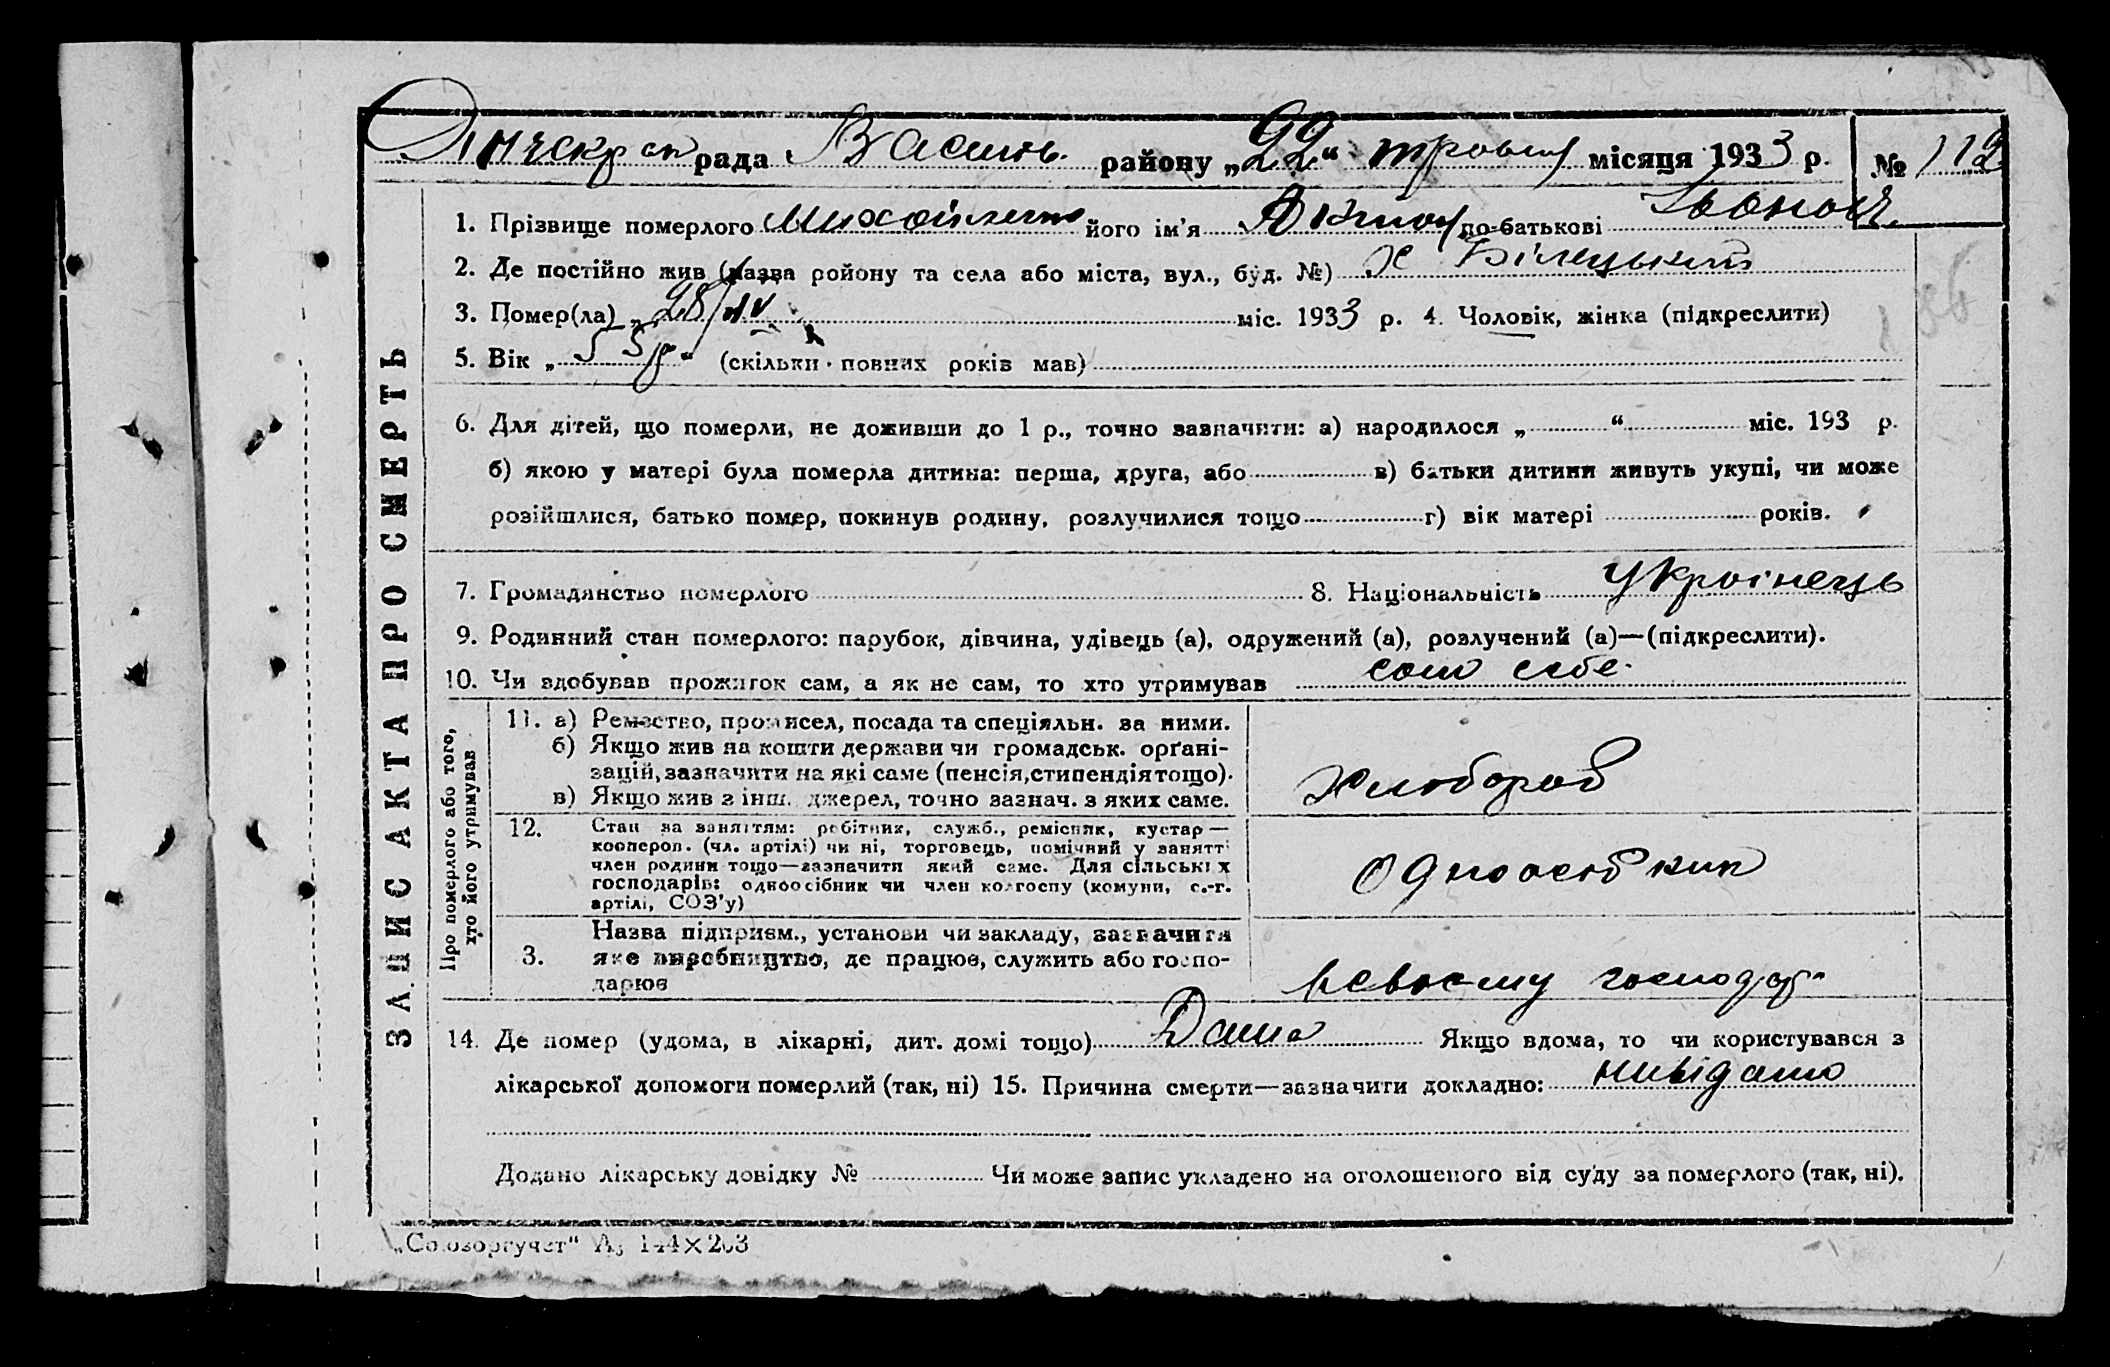 рада Василь. району „22“ травня місяця 1933 р. № 112
1. Прізвище померлого Михайленко його ім'я по-батькові Іванов.
2. Де постійно жив (назва ройону та села або міста, вул., буд. №) х Білецький
3. Помер(ла) „28/IV міс. 1933 р. 4. Чоловік, жінка (підкреслити)
5. Вік „55 р“ (скільки повних років мав)
6. Для дітей, що померли, не доживши до 1 р., точно зазначити: а) народилося „ “ міс. 193 р.
б) якою у матері була померла дитина: перша, друга, або в) батьки дитини живуть укупі, чи може
розійшлися, батько помер, покинув родину, розлучилися тощо г) вік матері років.
7. Громадянство померлого 8. Національність Українець
9. Родинний стан померлого: парубок, дівчина, удівець (а), одружений (а), розлучений (а)—(підкреслити).
10. Чи здобував прожиток сам, а як не сам, то хто утримував сам себе
ЗАПИС АКТА ПРО СМЕРТЬ
Про померлого або того, хто його утримував
11. а) Ремество, промисел, посада та спеціяльн. за ними.
б) Якщо жив на кошти держави чи громадськ. орґані-
зацій, зазначити на які саме (пенсія, стипендія тощо).
в) Якщо жив з інш. джерел, точно зазнач. з яких саме.
Хлібороб
12. Стан за заняттям: робітник, служб., ремісник, кустар —
коопероп. (чл. артілі) чи ні, торговець, помічний у занятті
член родини тощо—зазначити який саме. Для сільських
господарів: одноосібник чи член колгоспу (комуни, с.-г.
артілі, СОЗ'у)
Одноосібник
Назва підприєм., установи чи закладу, зазначити
3. яке виробництво, де працює, служить або госпо-
дарює
господар
14. Де помер (удома, в лікарні, дит. домі тощо) Дома Якщо вдома, то чи користувався з
лікарської допомоги померлий (так, ні) 15. Причина смерти—зазначити докладно: нивідомо
Додано лікарську довідку № Чи може запис укладено на оголошеного від суду за померлого (так, ні).
„Союзоргучет“ А5 144×203